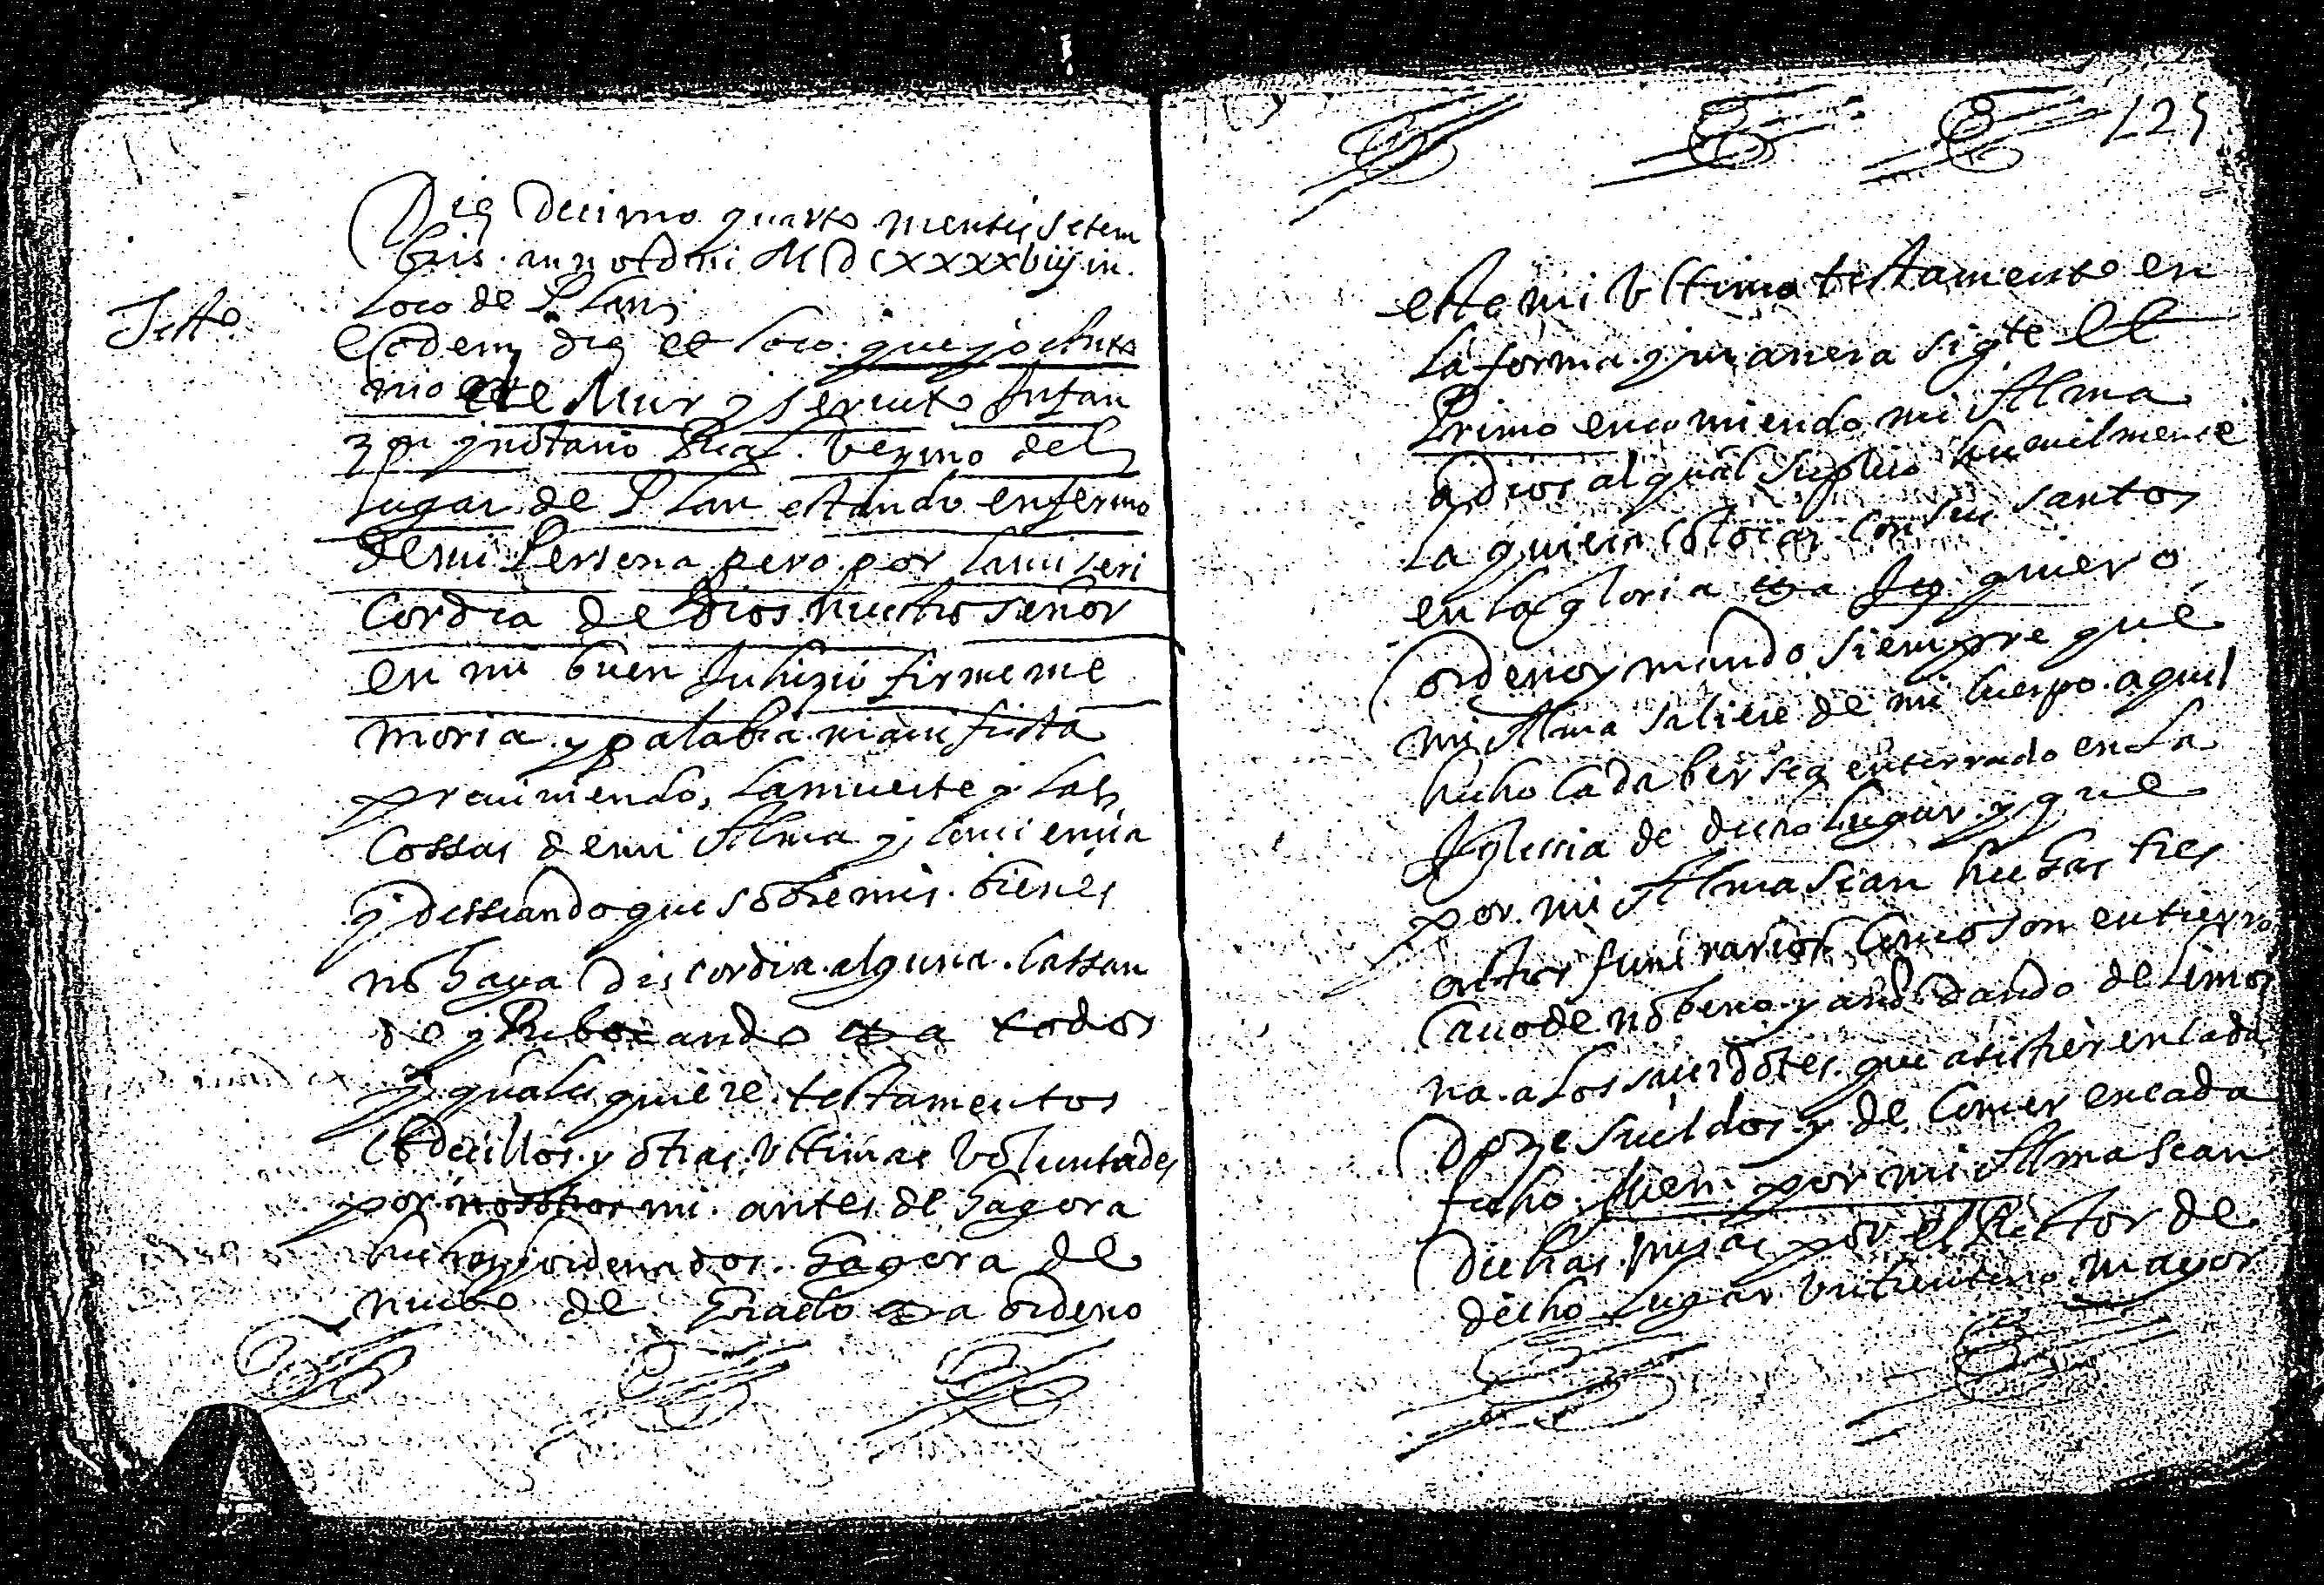 Die decimo quarto mensis setem
bris anno dni MDCXXXXbiij in
loco de Plan
Testto
Eodem die et loco que yo Anto
nio de Mur y Serueto Infan
zon y notario Real vezino del
lugar de Plan estando enfermo
de mi Persona pero por la miseri
cordia de Dios nuestro señor
en mi buen Juhizio firme me
moria y palabra manifiesta
preuiniendo la muerte y las
cossas de mi Alma y conciencia
y desseando que sobre mis bienes
no haya discordia alguna cassan
do y Rebocando todos
y qualesquiere testamentos
Codecillos y otras vltimas voluntades
por nosotros mi antes de hagora
hechos y ordenados hagora de
nuebo de grado ordeno
125
este mi vltimo testamento en
la forma y manera sigte et
Primo encomiendo mi Alma
a Dios al qual suplico humilmente
la quiera colocar con sus santos
en la gloria quiero
ordeno y mando siempre que
mi Alma saliere de mi cuerpo aquel
hecho cadaber sea enterrado en la
Yglessia de dicho lugar y que
por mi Alma sean hechas tres
actos funerarios como son entierro
cauo de nobena y año dando de limos
na a los sacerdotes que asistiran en cada
doze sueldos y de comer en cada
fecho Iten por mi Alma sean
dichas misas por el Rector de
decho lugar vn trentenario mayor